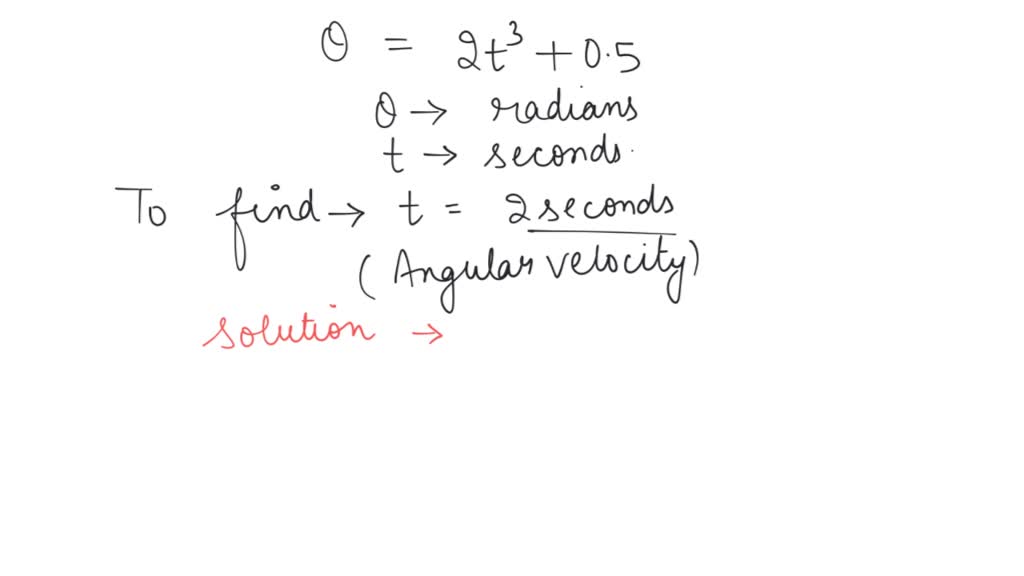 θ = 2t³ + 0.5
θ → radians
t → seconds.
To find → t = 2 seconds
(Angular velocity)
solution →